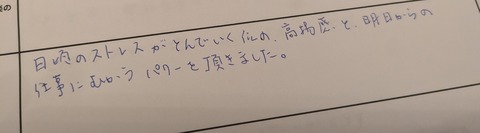 の
日頃のストレスがとんでいく位の、高揚感と、明日からの
仕事にむかう パワーを頂きました。